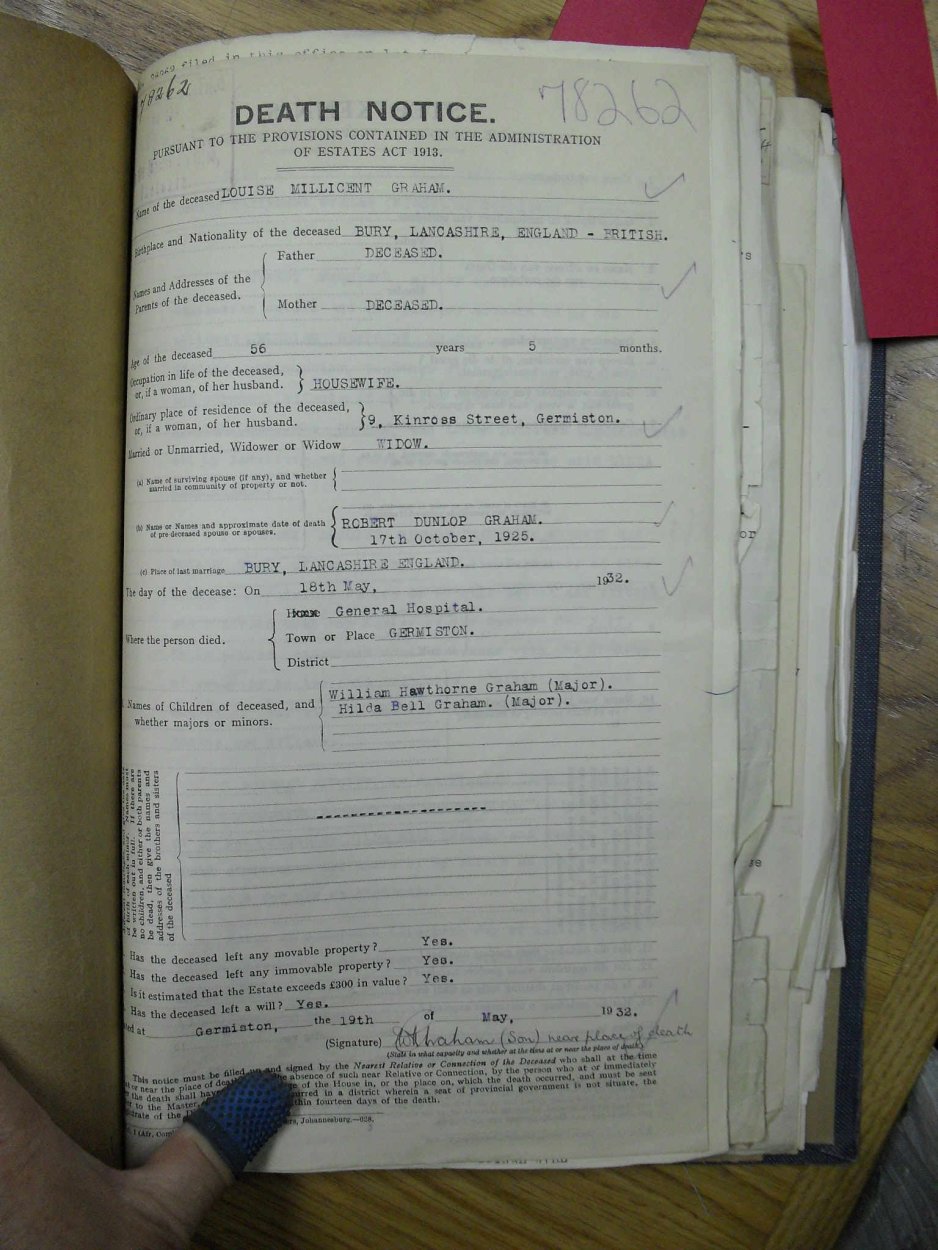 filed in this office on 1st
78262
78262
DEATH NOTICE.
PURSUANT TO THE PROVISIONS CONTAINED IN THE ADMINISTRATION
OF ESTATES ACT 1913.
Name of the deceased LOUISE MILLICENT GRAHAM.
Birthplace and Nationality of the deceased BURY, LANCASHIRE, ENGLAND - BRITISH.
Names and Addresses of the Parents of the deceased.
Father DECEASED.
Mother DECEASED.
Age of the deceased 56 years 5 months.
Occupation in life of the deceased,
or, if a woman, of her husband. HOUSEWIFE.
Ordinary place of residence of the deceased,
or, if a woman, of her husband. 9, Kinross Street, Germiston.
Married or Unmarried, Widower or Widow WIDOW.
(a) Name of surviving spouse (if any), and whether
married in community of property or not.
(b) Name or Names and approximate date of death
of pre-deceased spouse or spouses.
ROBERT DUNLOP GRAHAM.
17th October, 1925.
(c) Place of last marriage BURY, LANCASHIRE ENGLAND.
The day of the decease: On 18th May, 1932.
Where the person died.
House General Hospital.
Town or Place GERMISTON.
District
Names of Children of deceased, and
whether majors or minors.
William Hawthorne Graham (Major).
Hilda Bell Graham. (Major).
be written out in full. If there are
no children, and either or both parents
be dead, then give the names and
addresses of the brothers and sisters
of the deceased
Has the deceased left any movable property? Yes.
Has the deceased left any immovable property? Yes.
Is it estimated that the Estate exceeds £300 in value? Yes.
Has the deceased left a will? Yes.
at Germiston, the 19th of May, 1932.
(Signature) WHGraham (Son) near place of death
(State in what capacity and whether at the time at or near the place of death)
This notice must be filled and signed by the Nearest Relative or Connection of the Deceased who shall at the time
or near the place of absence of such near Relative or Connection, by the person who at or immediately
the death shall have of the House in, or the place on, which the death occurred, and must be sent
to the Master in a district wherein a seat of provincial government is not situate, the
of the fourteen days of the death.
Johannesburg.—028.
's
or